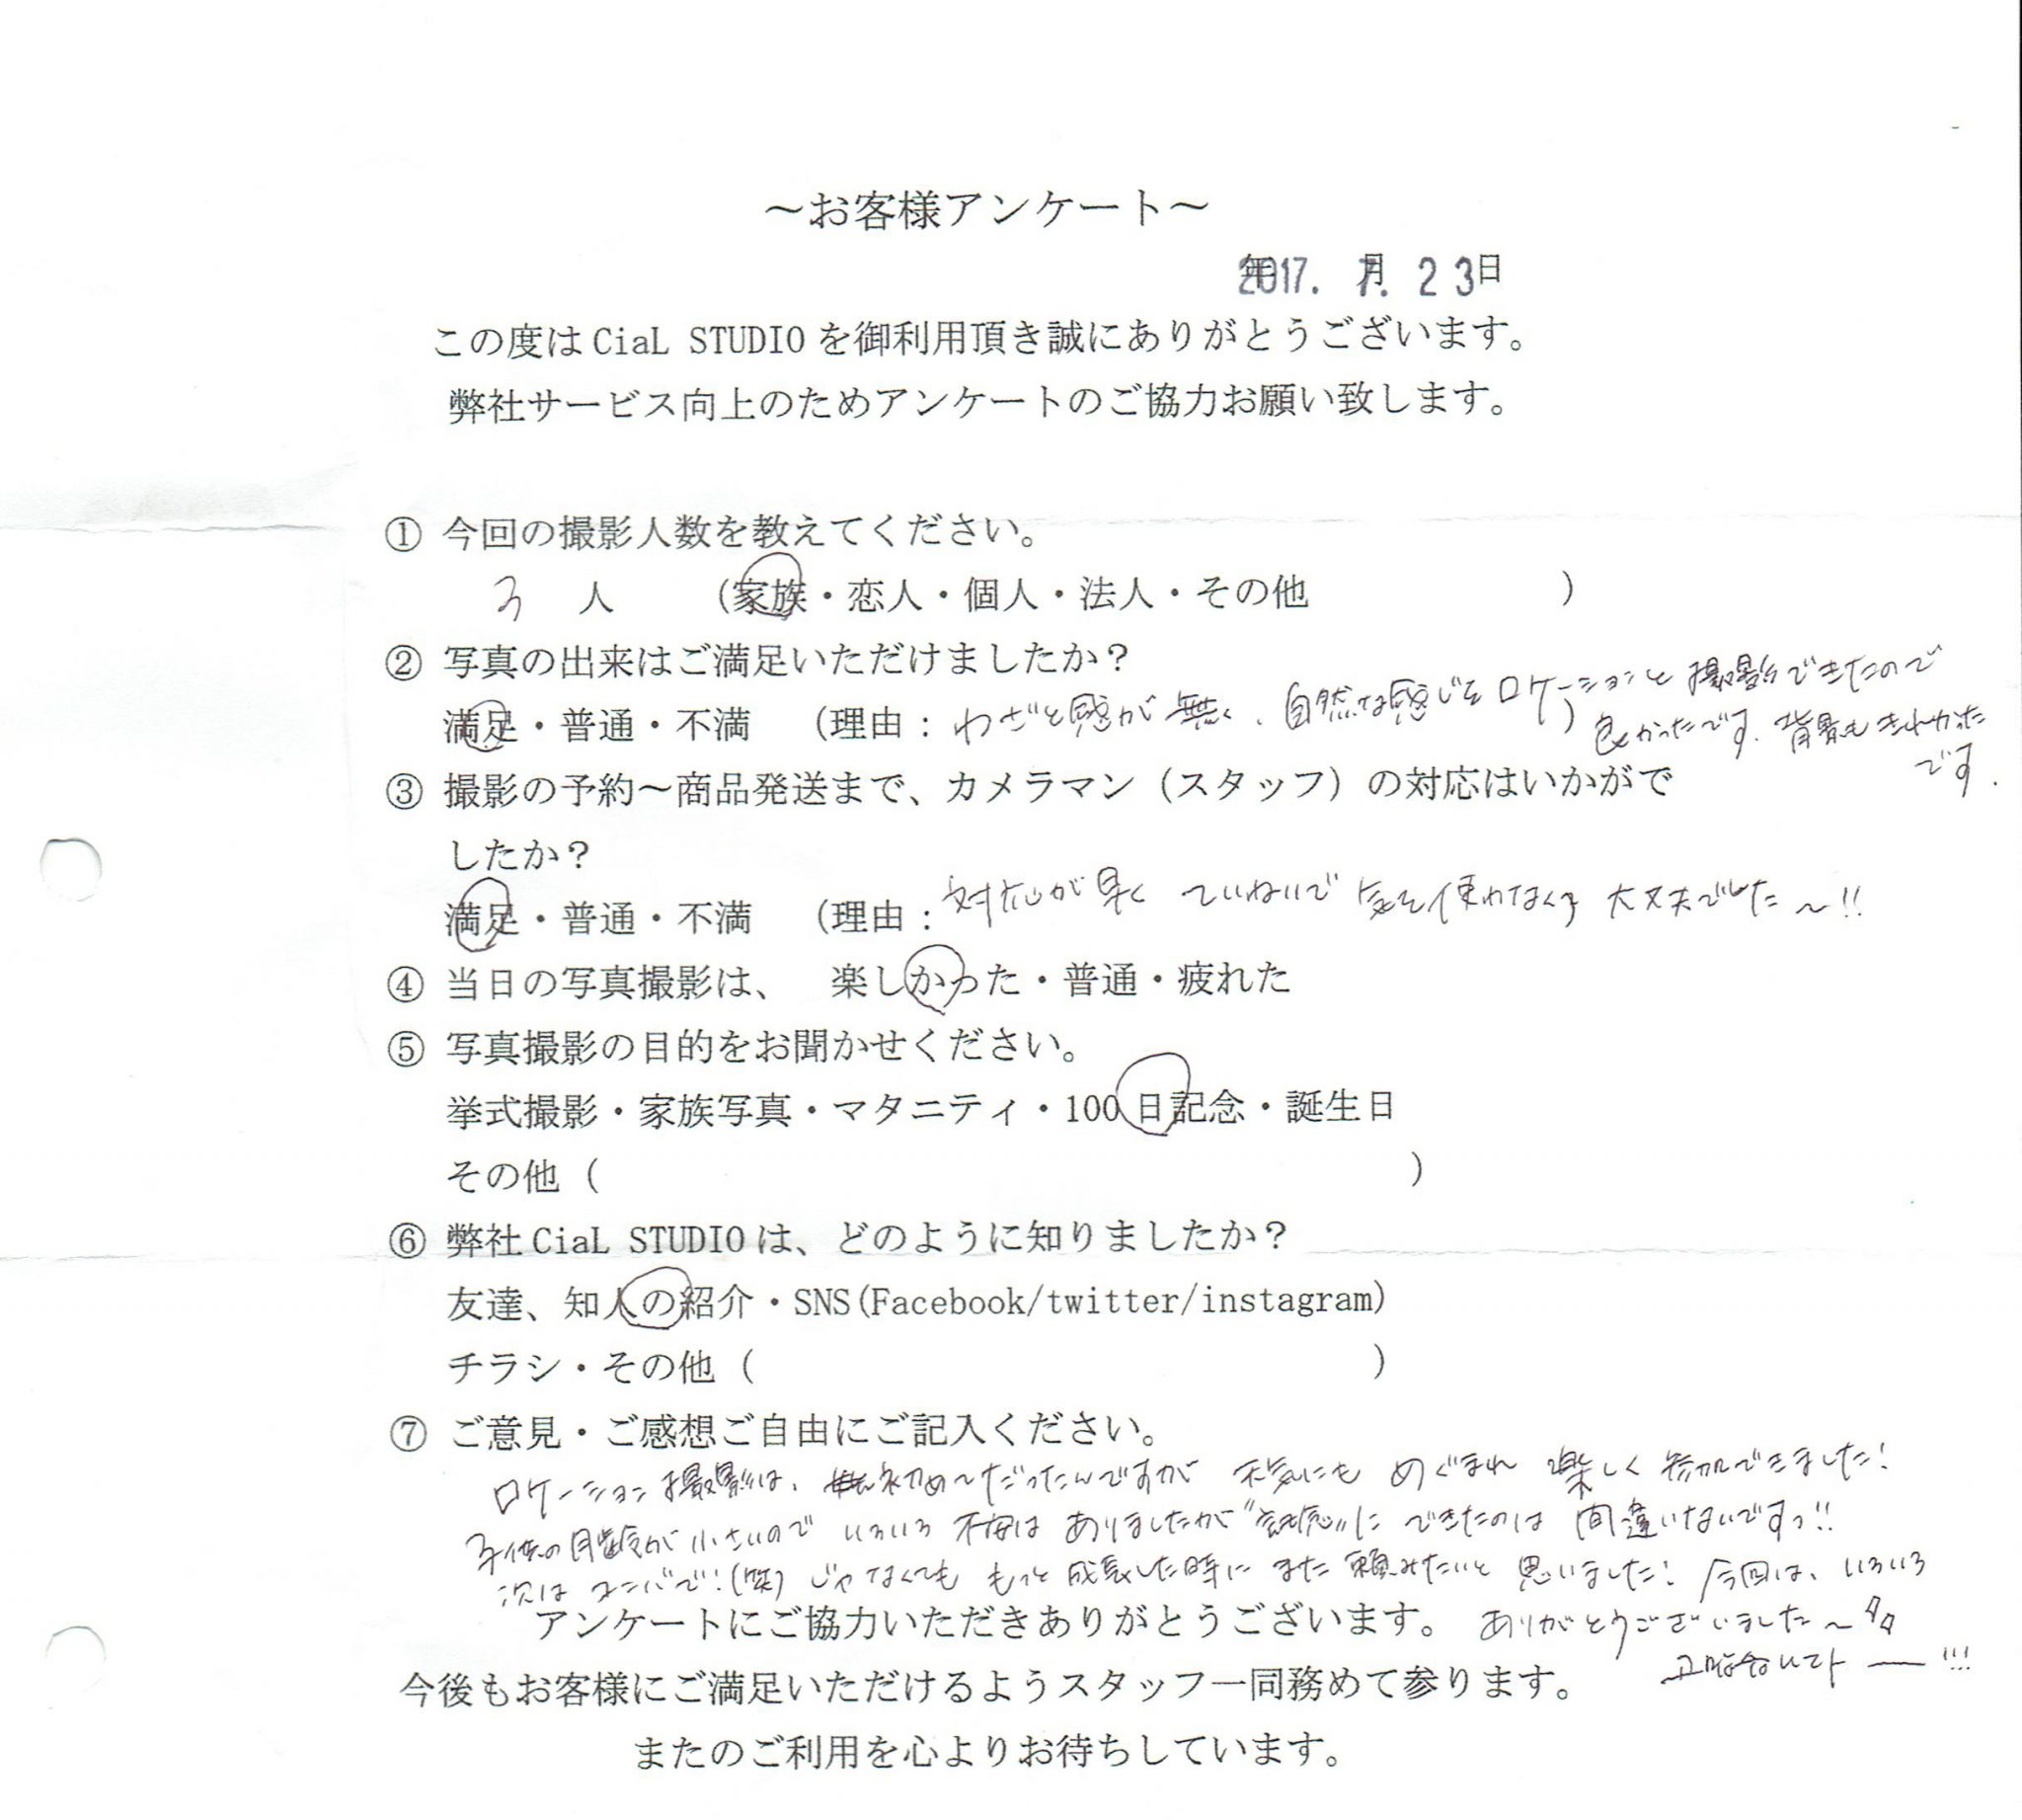 ～お客様アンケート～
2017年 7.月 23日
この度はCiaL STUDIOを御利用頂き誠にありがとうございます。
弊社サービス向上のためアンケートのご協力お願い致します。
① 今回の撮影人数を教えてください。
3 人 （家族・恋人・個人・法人・その他 ）
② 写真の出来はご満足いただけましたか？
満足・普通・不満 （理由：わざと感が無く、自然な感じをロケーションと撮影できたので ）
良かったです。背景もきれかった
です.
③ 撮影の予約～商品発送まで、カメラマン（スタッフ）の対応はいかがで
したか？
満足・普通・不満 （理由：対応が早く ていねいで 気を使わなくて 大丈夫でした～!!
④ 当日の写真撮影は、 楽しかった・普通・疲れた
⑤ 写真撮影の目的をお聞かせください。
挙式撮影・家族写真・マタニティ・100日記念・誕生日
その他（ ）
⑥ 弊社CiaL STUDIOは、どのように知りましたか？
友達、知人の紹介・SNS(Facebook/twitter/instagram)
チラシ・その他（ ）
⑦ ご意見・ご感想ご自由にご記入ください。
ロケーション撮影は、初め～だったんですが 天気にも めぐまれ 楽しく 参加できました!
子供の月齢が小さいので いろいろ 不安は ありましたが"記念"に できたのは 間違いないですっ!!
次は ヌンバで!(笑) じゃなくても もっと 成長した時に また 頼みたいと 思いました! 今回は、いろいろ
アンケートにご協力いただきありがとうございます。 ありがとうございました～
今後もお客様にご満足いただけるようスタッフ一同務めて参ります。
またのご利用を心よりお待ちしています。